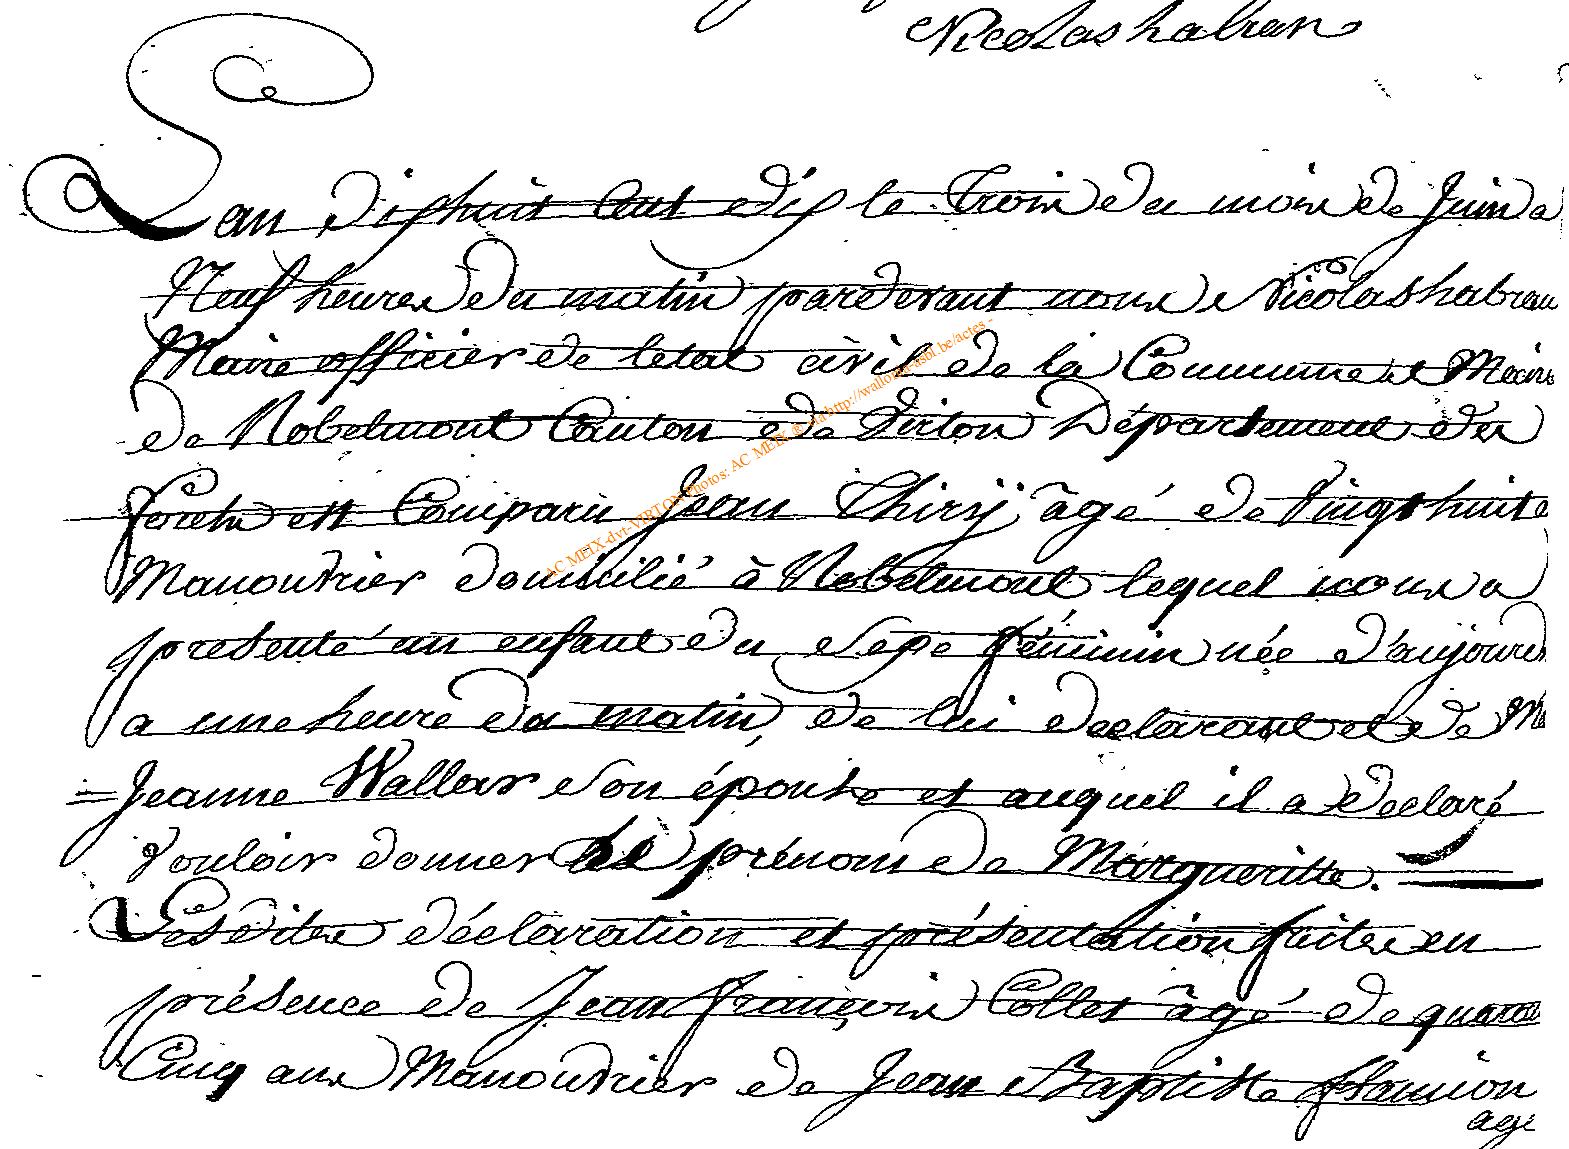 Nicolas habran
L'an dixhuit cent edix le trois du mois de Juin a
Neuf heures du matin pardevant nous Nicolas habran
Maire officier de letat civil de la Commune et Mairie
de Robelmont Canton de Virton Département des
forets est Comparu Jean Thirÿ âgé de vingt huit
Manouvrier domicilié à Robelmont lequel nous a
présenté un enfant du Sexe féminin née d'aujourd
a une heure du matin, de lui declarant et de M
= Jeanne Wallar son épouse et auquel il a déclaré
vouloir donner le prénom de Margueritte.
Lesdites déclaration et présentation faites en
présence de Jean françois Collet âgé de quarante
Cinq ans Manouvrier de Jean Baptiste flamion
age
AC MEIX-dvt-VIRTON Photos: AC MEIX & via http://wallonia-asbl.be/actes -